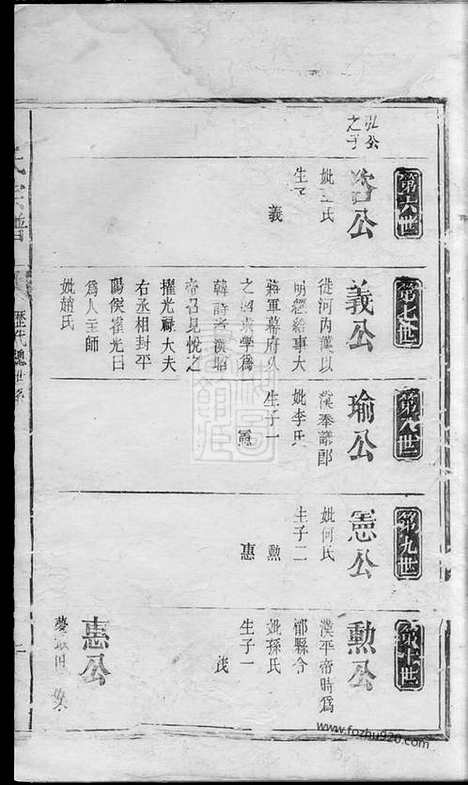 第六世
弘公
之子
容公
妣王氏
生子
義
第七世
義公
從河內蔡以
明經給事大
將軍幕府久
之詔求學爲
韓詩者漢昭
帝召見悅之
擢光祿大夫
右丞相封平
陽侯霍光曰
爲人主師
妣趙氏
第八世
瑜公
漢奉議郎
妣李氏
生子一
憲
第九世
憲公
妣何氏
生子二
勲
惠
第十世
勲公
漢平帝時爲
鄃縣令
妣孫氏
生子一
茂
惠公
氏宗譜
歷代總世系
www.fozhu920.com